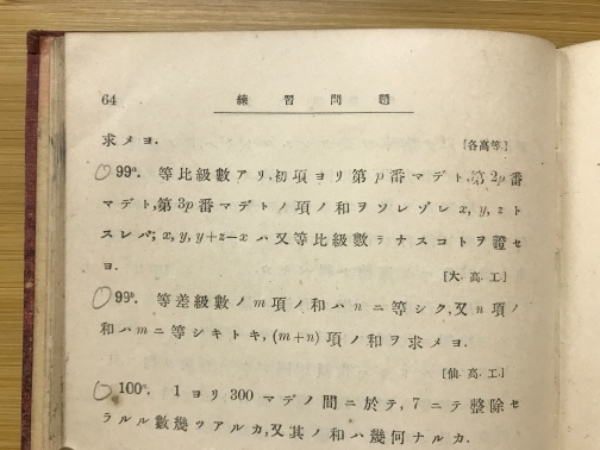 64 練習問題
求メヨ. [各高等.]
99ª. 等比級數アリ,初項ヨリ第p番マデト,第2p番
マデト,第3p番マデトノ項ノ和ヲソレゾレ x, y, z ト
スレバ; x, y, y+z−x ハ又等比級數ヲナスコトヲ證セ
ヨ. [大. 高. 工.]
99ᵇ. 等差級數ノm項ノ和ハnニ等シク,又n項ノ
和ハmニ等シキトキ, (m+n) 項ノ和ヲ求メヨ.
[仙. 高. 工.]
100ª. 1ヨリ300マデノ間ニ於テ, 7ニテ整除セ
ラルル數幾ツアルカ,又其ノ和ハ幾何ナルカ.